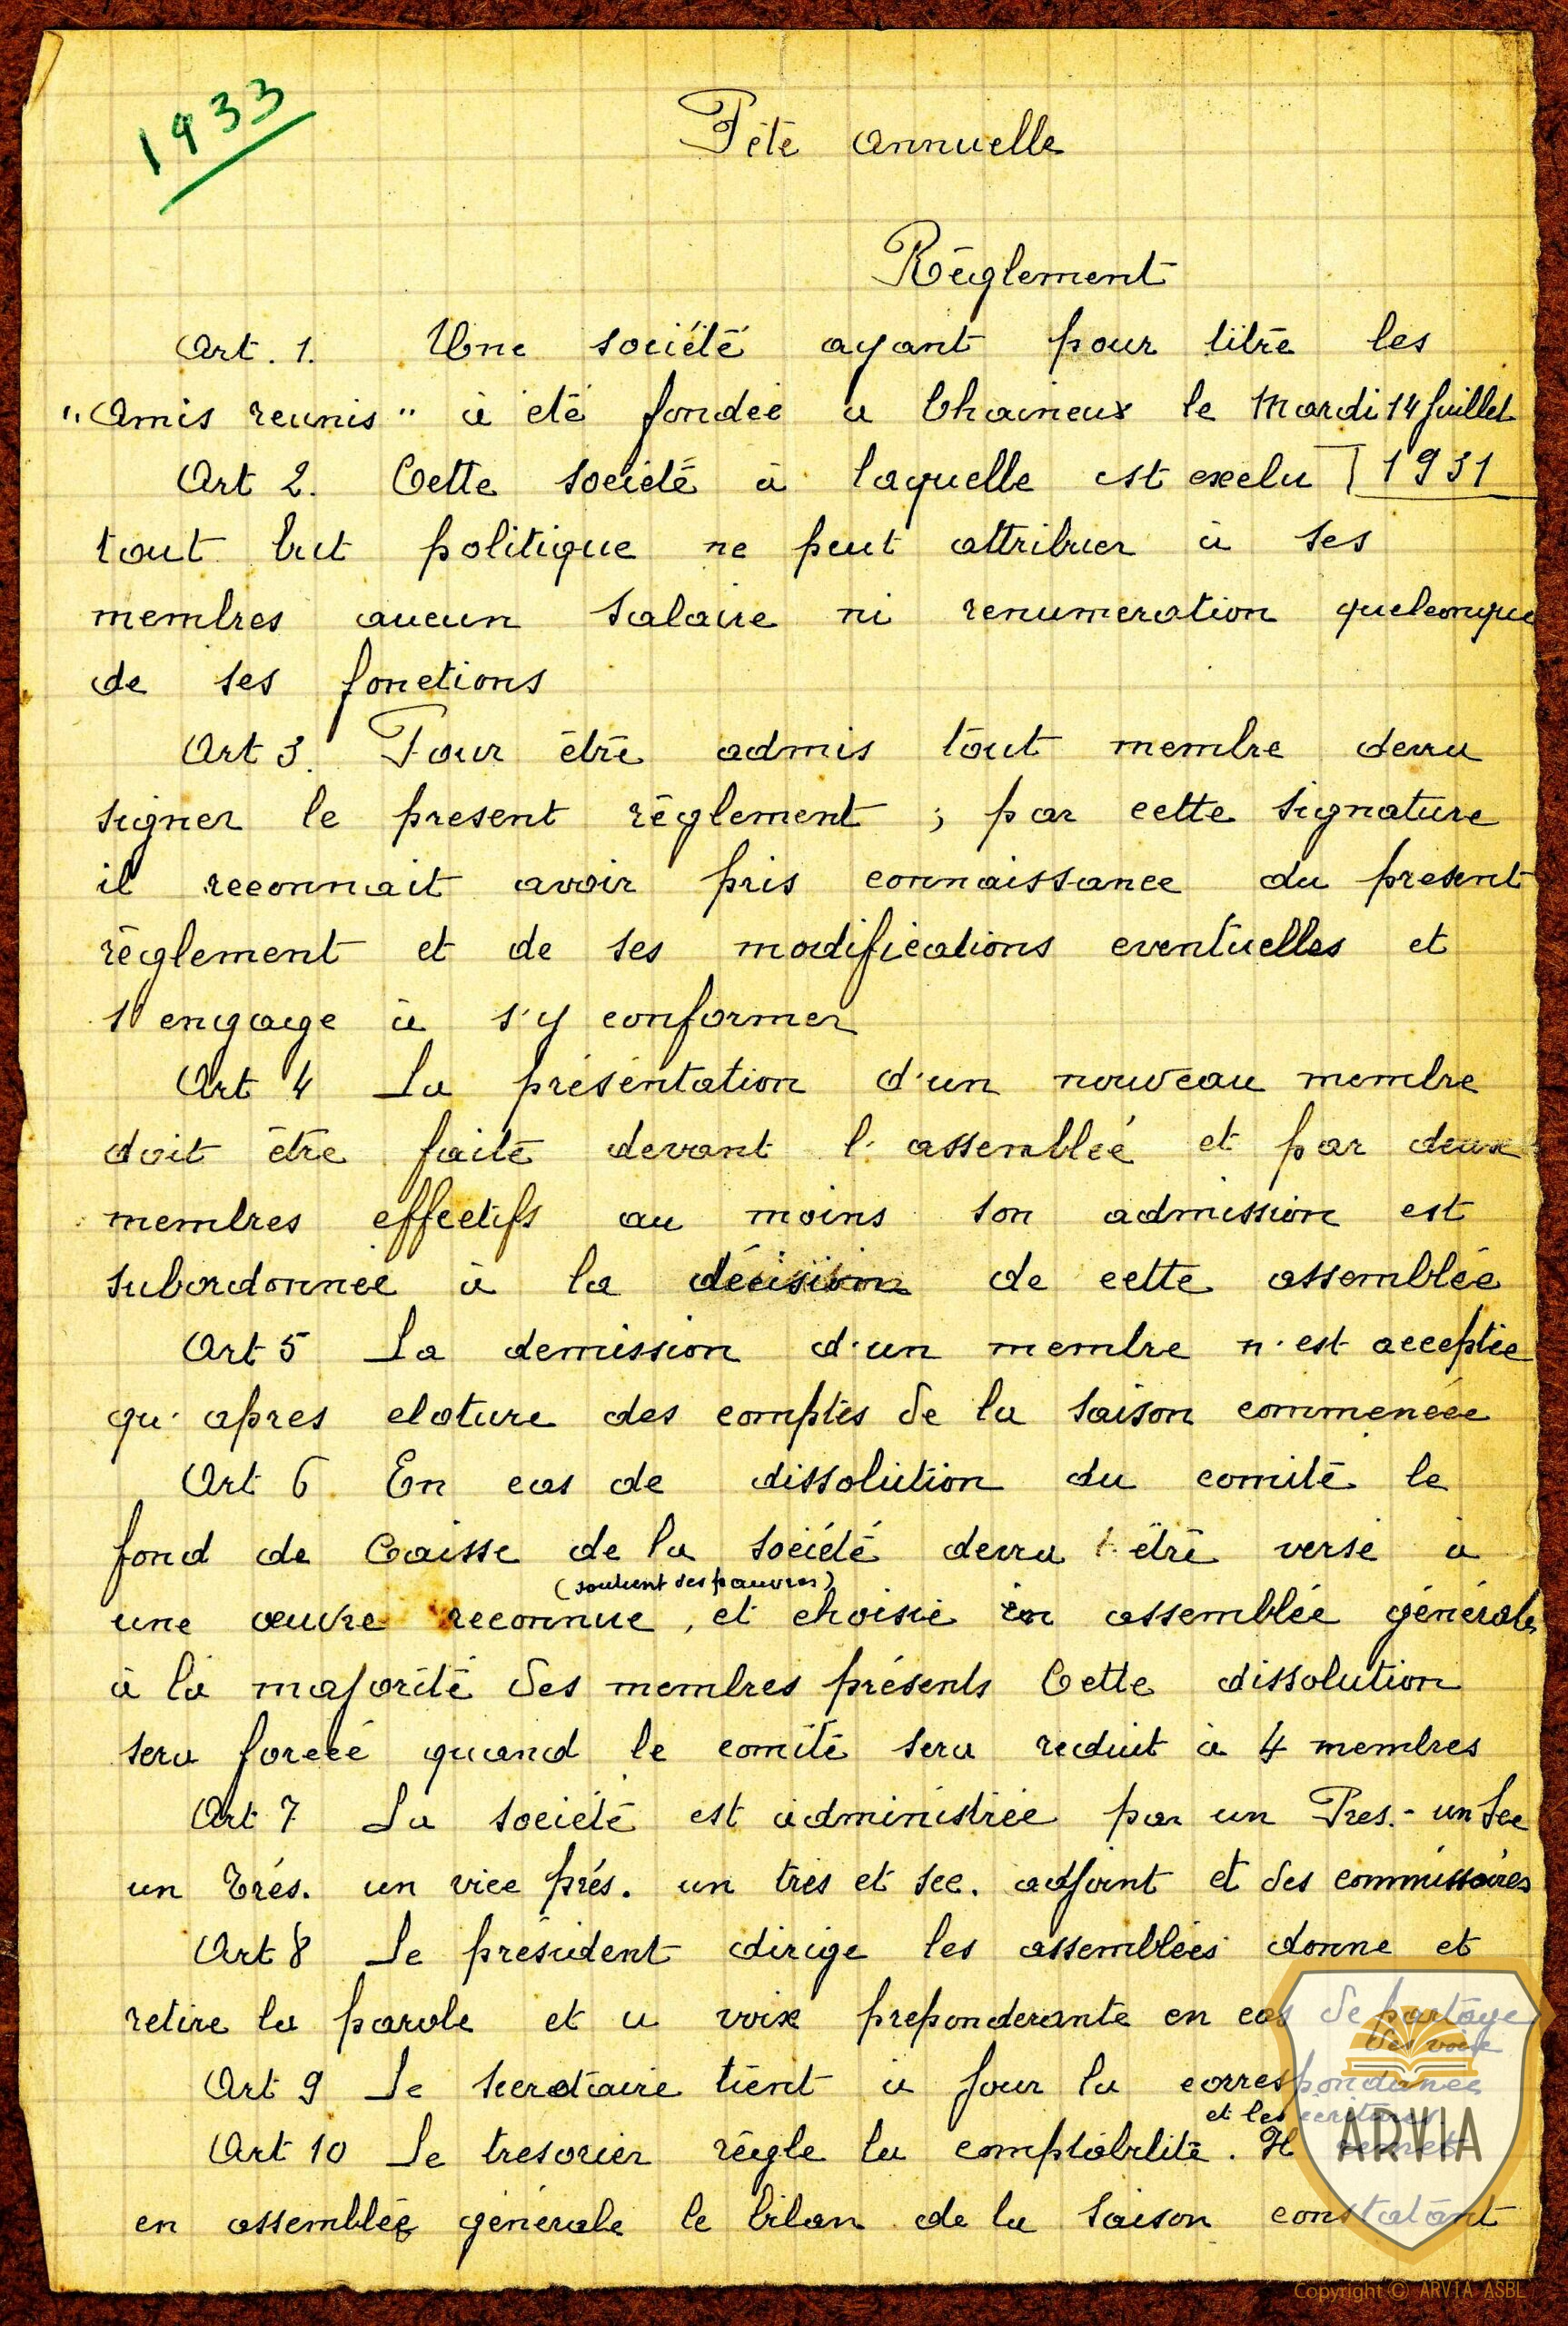 1933
Fête annuelle
Règlement
Art. 1. Une société ayant pour titre les
"Amis reunis" à été fondée a Chaineux le Mardi 14 Juillet
1931
Art 2. Cette société à laquelle est exclu
tout but politique ne peut attribuer à ses
membres aucun salaire ni renumeration quelconque
de ses fonctions
Art 3. Pour être admis tout membre devra
signer le present règlement ; par cette signature
il reconnait avoir pris connaissance du present
règlement et de ses modifications eventuelles et
s'engage à s'y conformer
Art 4 La présentation d'un nouveau membre
doit être faite devant l'assemblée et par deux
membres effectifs au moins son admission est
subordonnée à la décision de cette assemblée
Art 5 La demission d'un membre n'est acceptée
qu'apres cloture des comptes de la saison commencée
Art 6 En cas de dissolution du comité le
fond de Caisse de la société devra être versé à
(soutient des pauvres)
une œuvre reconnue, et choisie en assemblée générale
à la majorité des membres présents Cette dissolution
sera forcée quand le comité sera reduit à 4 membres
Art 7 La société est administrée par un Pres. - un Sec
un Trés. un vice prés. un tres et sec. adjoint et des commissaires
Art 8 Le président dirige les assemblées donne et
retire la parole et a voix preponderante en cas de partage
des voix
Art 9 Le secretaire tient à jour la correspondance
et les écritures
Art 10 Le tresorier règle la comptabilité. Il remet
en assemblée générale le bilan de la saison constatant
ARVIA
Copyright © ARVIA ASBL